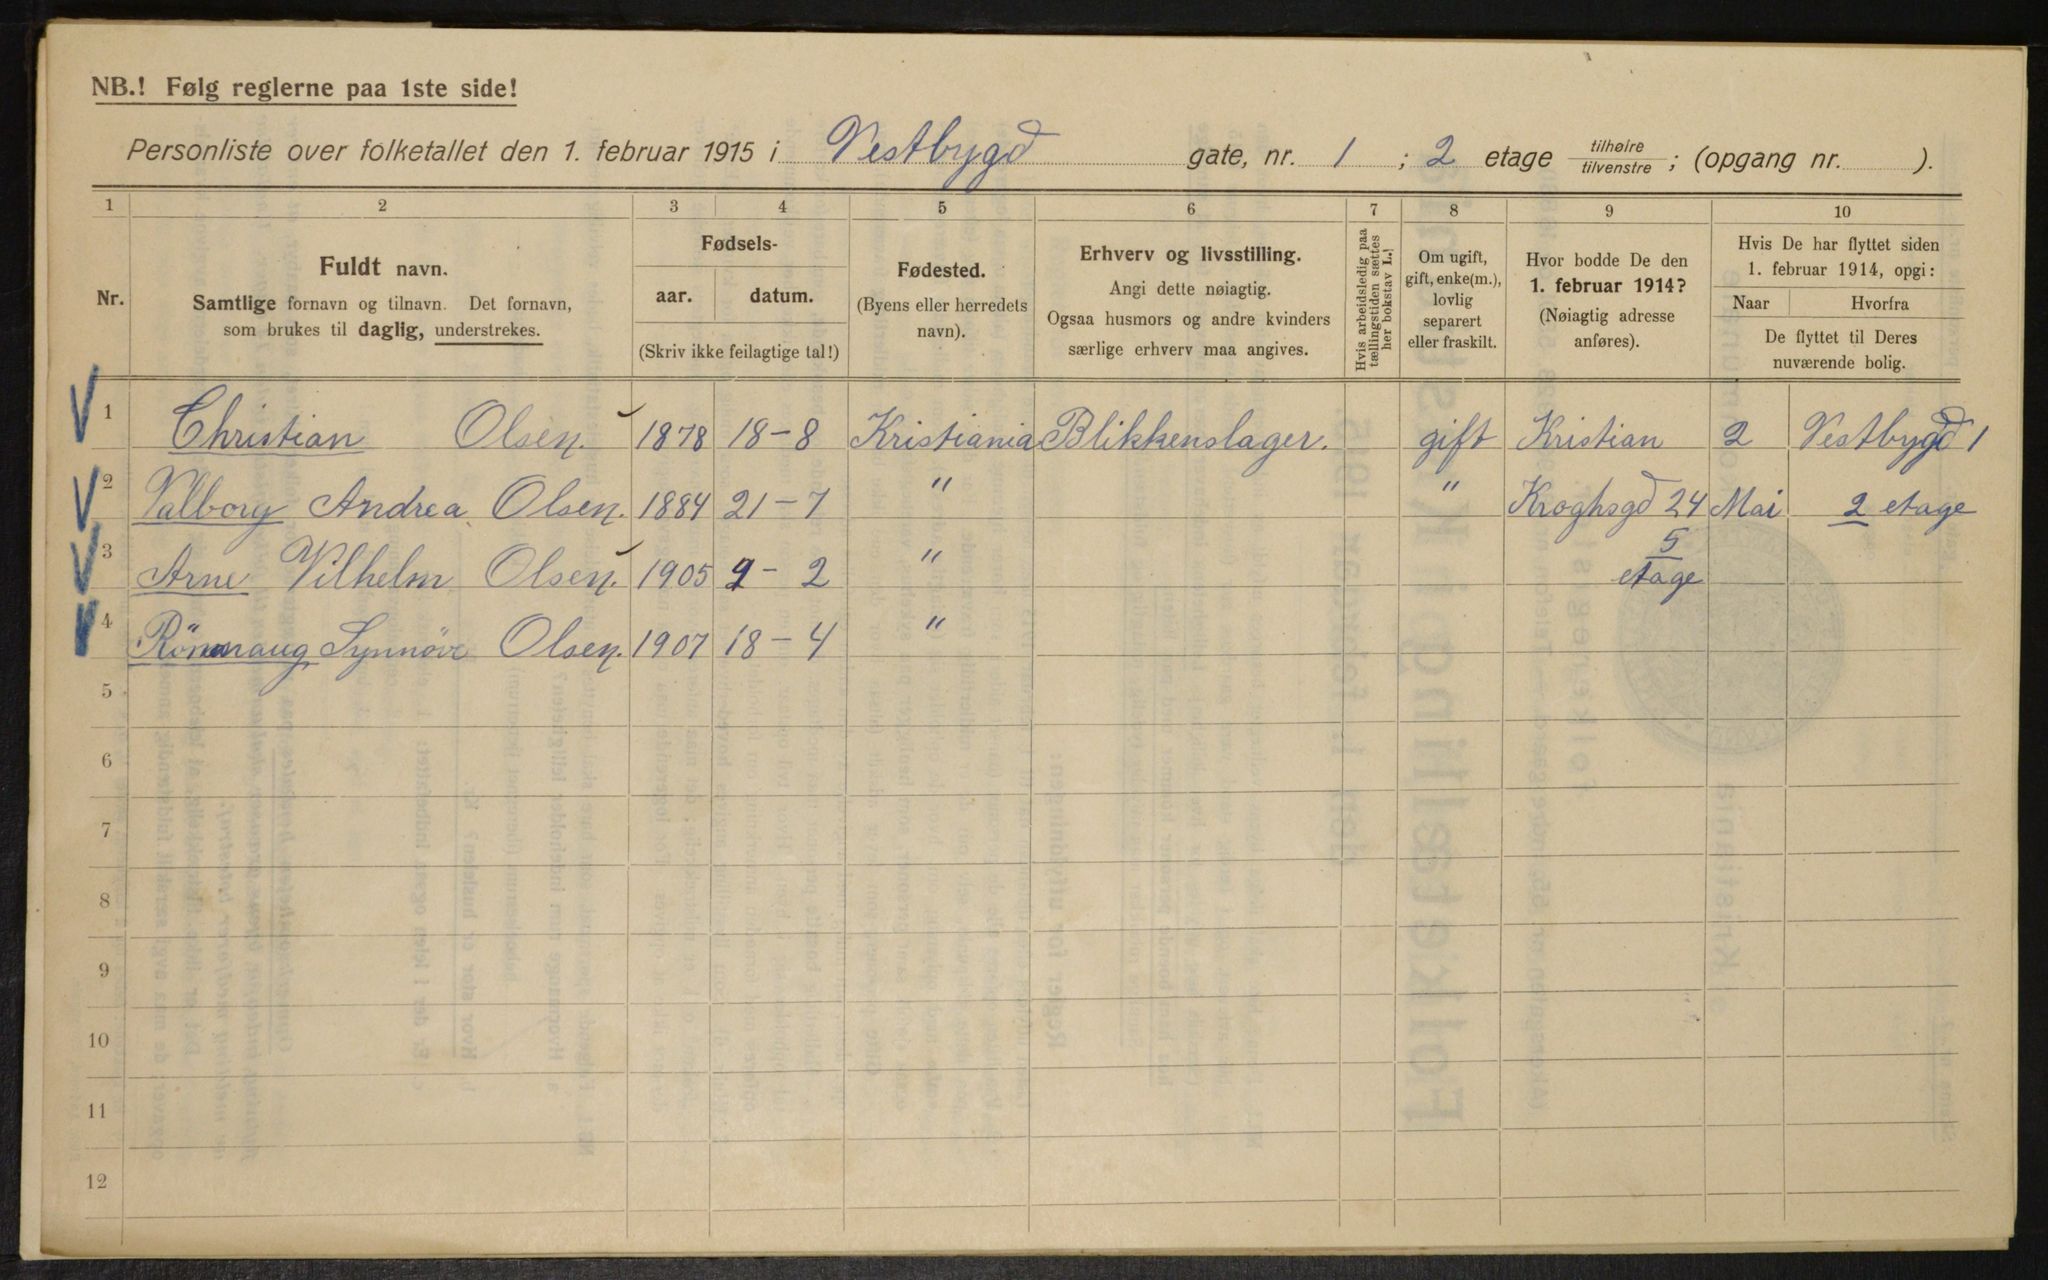 NB.! Følg reglerne paa 1ste side!
Personliste over folketallet den 1. februar 1915 i Vestbygd gate, nr. 1 ; 2 etage tilhøire/tilvenstre ; (opgang nr. ).
1 2 3 4 5 6 7 8 9 10
Nr.
Fuldt navn.
Samtlige fornavn og tilnavn. Det fornavn,
som brukes til daglig, understrekes.
Fødsels-
aar. datum.
(Skriv ikke feilagtige tal!)
Fødested.
(Byens eller herredets
navn).
Erhverv og livsstilling.
Angi dette nøiagtig.
Ogsaa husmors og andre kvinders
særlige erhverv maa angives.
Hvis arbeidsledig paa
tællingstiden sættes
her bokstav L.!
Om ugift,
gift, enke(m.),
lovlig
separert
eller fraskilt.
Hvor bodde De den
1. februar 1914?
(Nøiagtig adresse
anføres).
Hvis De har flyttet siden
1. februar 1914, opgi:
Naar Hvorfra
De flyttet til Deres
nuværende bolig.
1 Christian Olsen. 1878 18-8 Kristiania Blikkenslager. gift Kristian 2 Vestbygd 1
2 Valborg Andrea Olsen. 1884 21-7 " " Kroghsgd 24 Mai 2 etage
3 Arne Vilhelm Olsen. 1905 9-2 " 5 etage
4 Rönnaug Synnöve Olsen. 1907 18-4 "
5
6
7
8
9
10
11
12